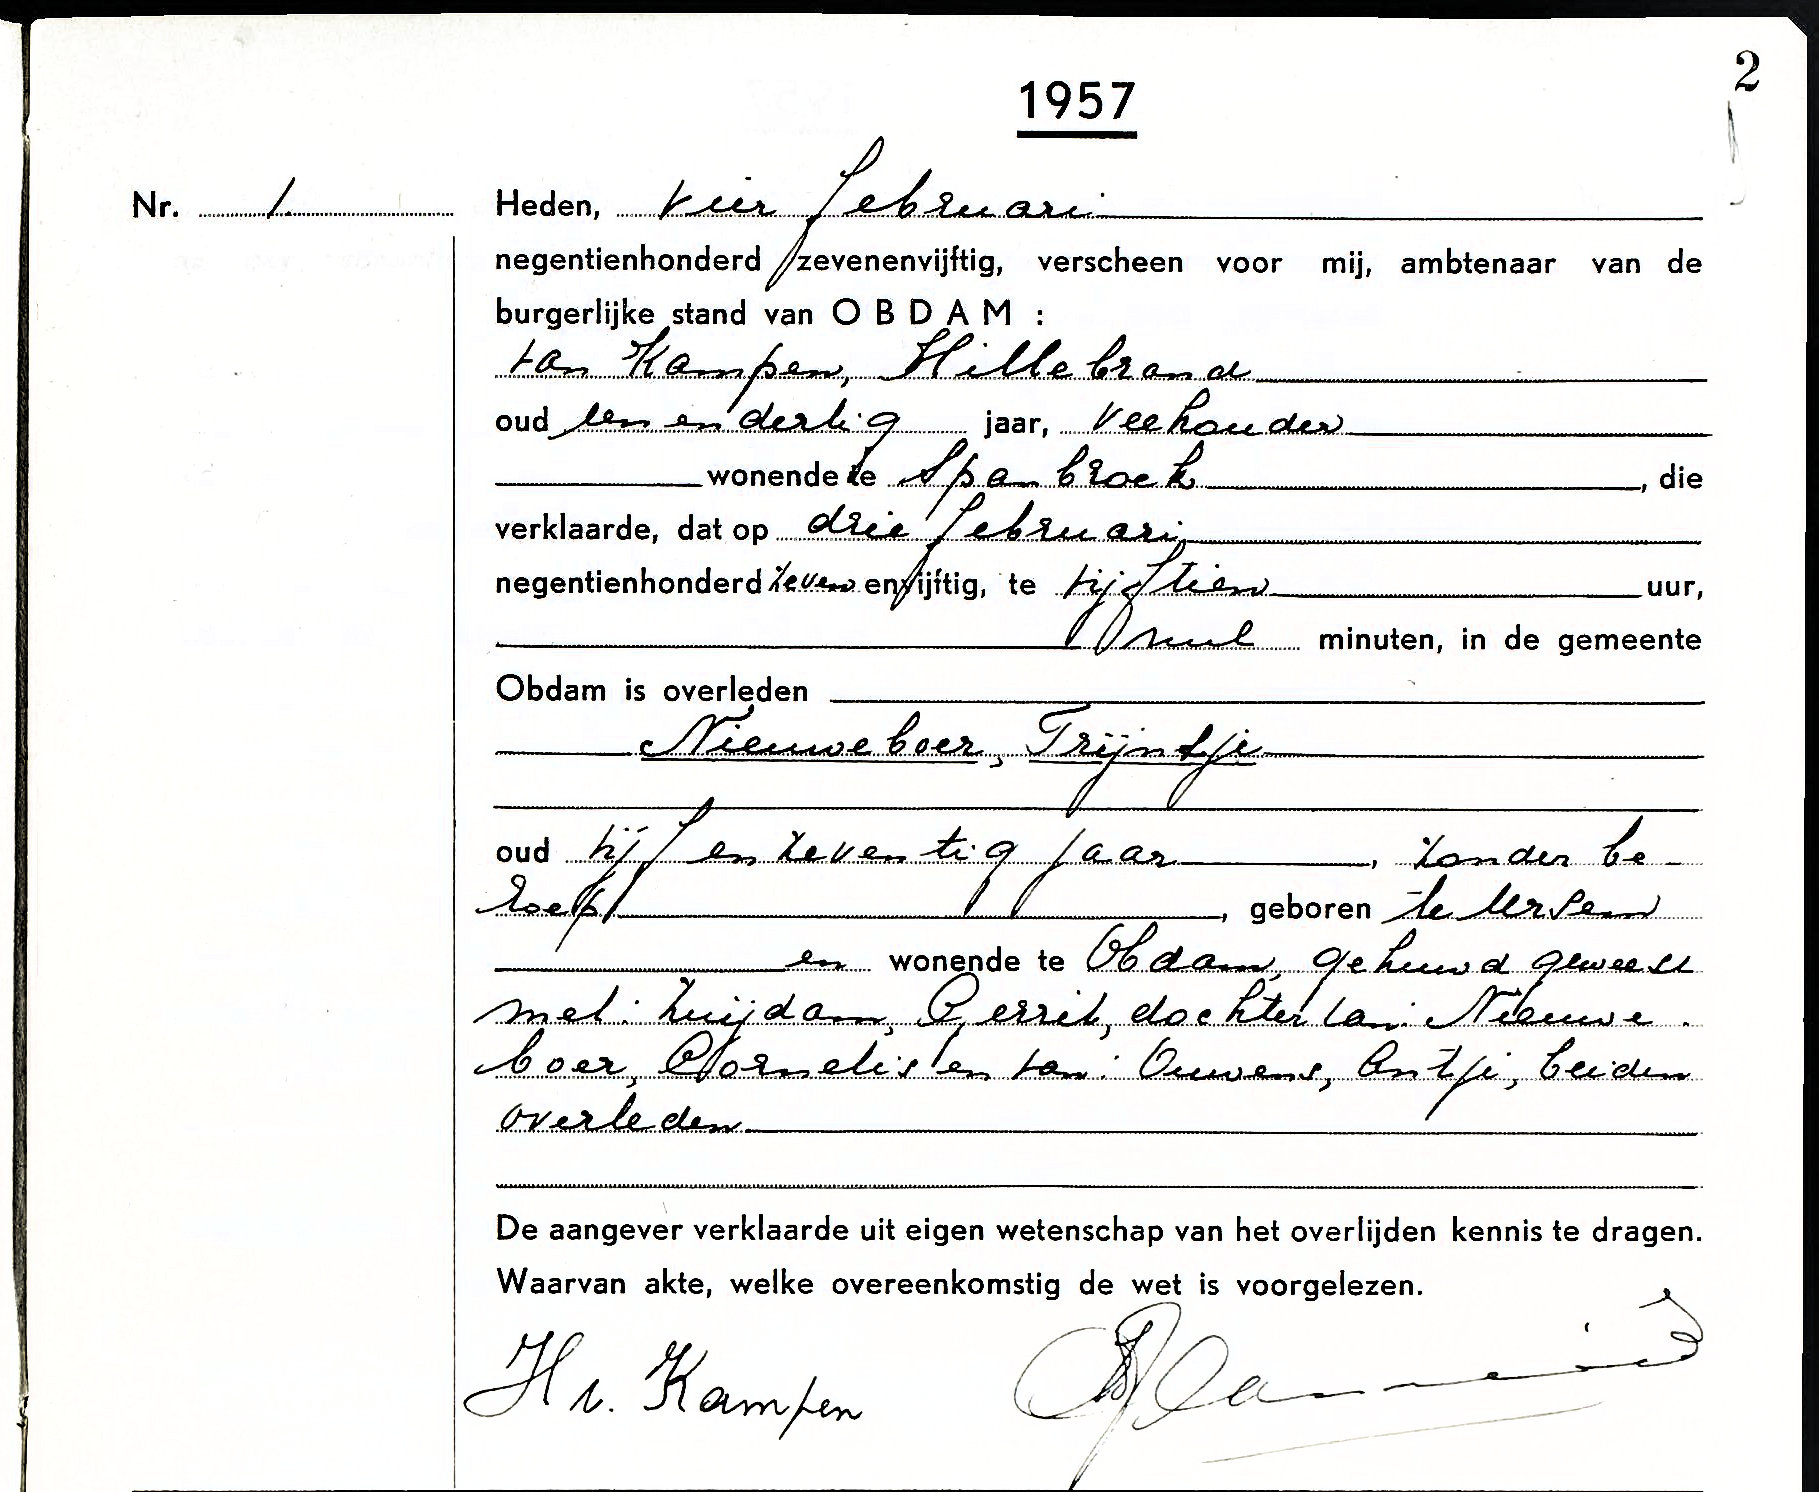 2
1957
Nr. 1. Heden, vier februari
negentienhonderd zevenenvijftig, verscheen voor mij, ambtenaar van de
burgerlijke stand van OBDAM :
van Kampen, Hillebrand
oud een en dertig jaar, veehouder
wonende te Spanbroek, die
verklaarde, dat op drie februari
negentienhonderd zeven en vijftig, te vijftien uur,
nul minuten, in de gemeente
Obdam is overleden
Nieuweboer, Trijntje
oud vijf en zeventig jaar, zonder be-
roep, geboren te Ursem
en wonende te Obdam, gehuwd geweest
met: Zuijdam, Gerrit, dochter van: Nieuwe-
boer, Cornelis en van: Ouwens, Antje, beiden
overleden
De aangever verklaarde uit eigen wetenschap van het overlijden kennis te dragen.
Waarvan akte, welke overeenkomstig de wet is voorgelezen.
H v. Kampen